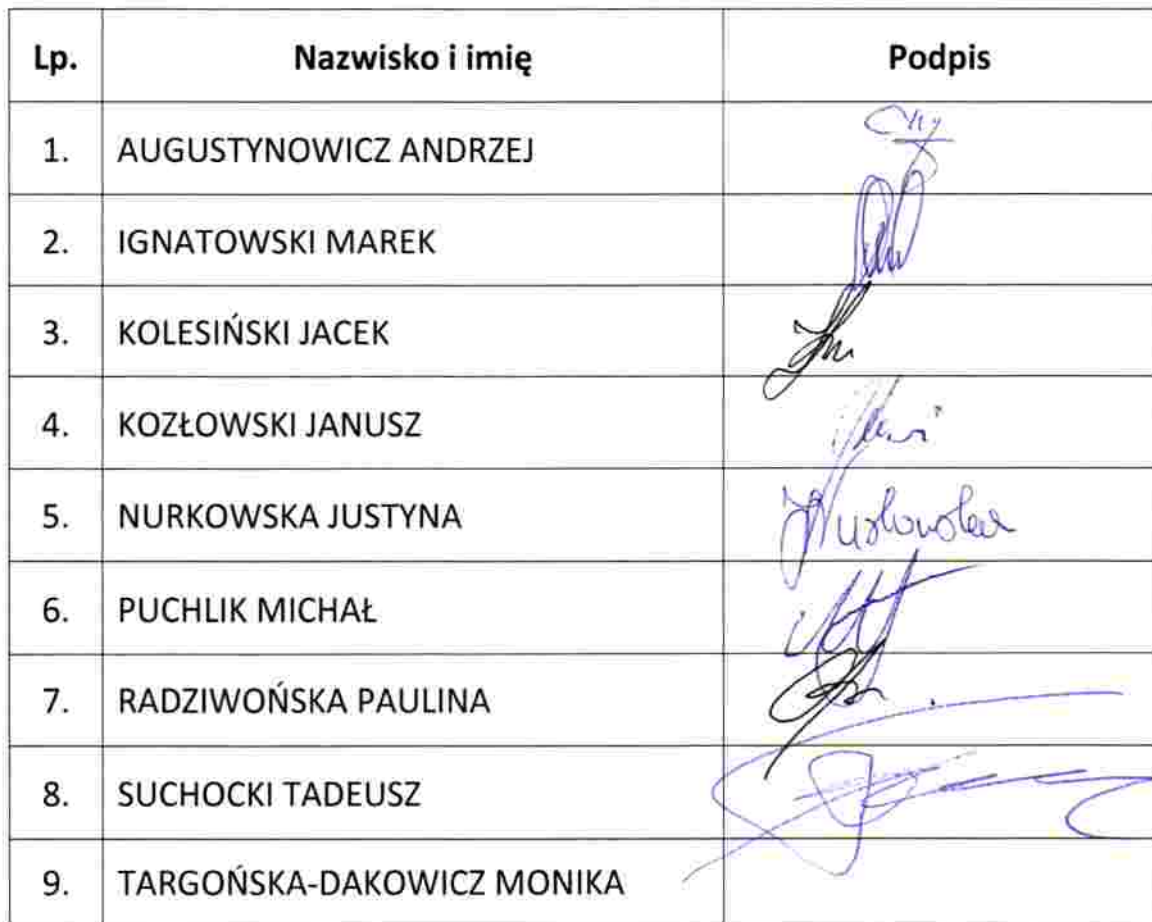 Lp. Nazwisko i imię Podpis
1. AUGUSTYNOWICZ ANDRZEJ
2. IGNATOWSKI MAREK
3. KOLESIŃSKI JACEK
4. KOZŁOWSKI JANUSZ
5. NURKOWSKA JUSTYNA
6. PUCHLIK MICHAŁ
7. RADZIWOŃSKA PAULINA
8. SUCHOCKI TADEUSZ
9. TARGOŃSKA-DAKOWICZ MONIKA